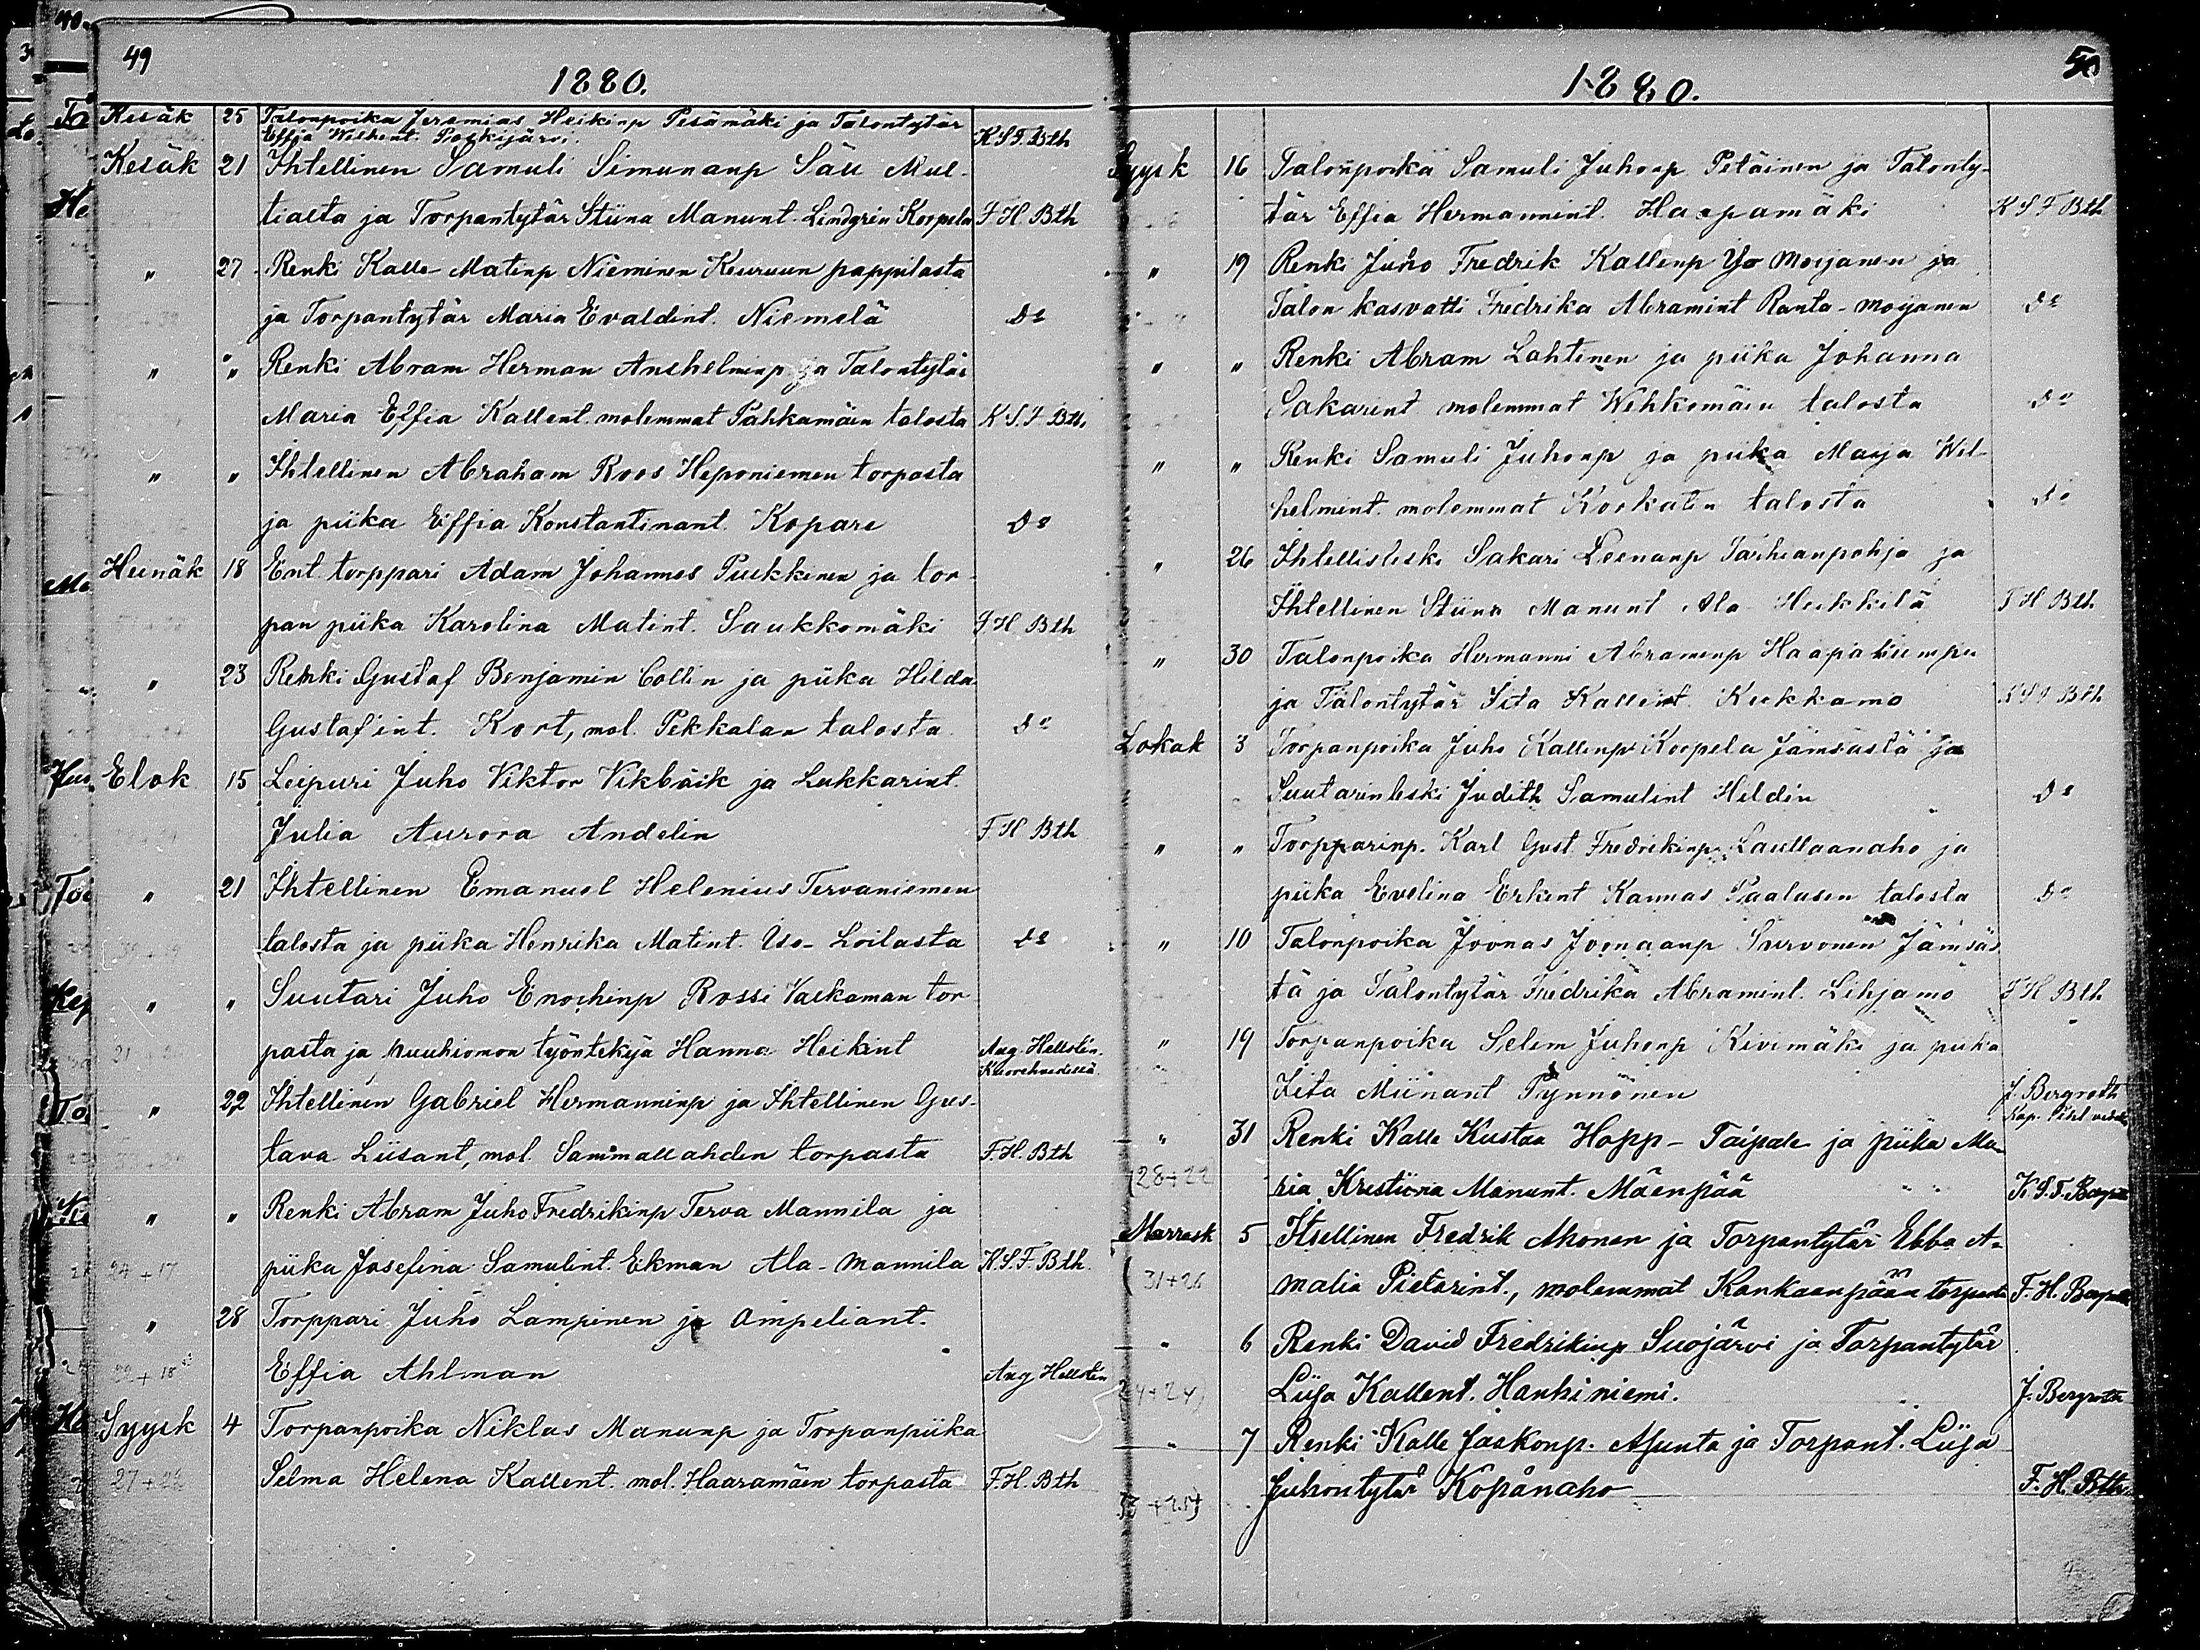 49
1880.
Kesäk 25 Talonpoika Jeremias Heikinp Pesämäki ja Talontytär
Effia Wilhent. Poskijärvi. K.S.F. Bth
Kesäk 21 Ihtellinen Samuli Simunanp Säu Mul-
tialta ja Torpantytär Stiina Manunt. Lindgrén Korpela F. H. Bth
" 27 Renki Kalle Matinp Nieminen Keuruun pappilasta
ja Torpantytär Maria Evaldint. Niemelä Do
" " Renki Abram Herman Anshelminp ja Talontytär
Maria Effia Kallent. molemmat Pahkamäen talosta K.S.F. Bth.
" " Ihtellinen Abraham Roos Heponiemen torpasta
ja piika Effia Konstantinant. Kopare Do
Heinäk 18 Ent. torppari Adam Johannes Pukkinen ja tor-
pan piika Karolina Matint. Saukkomäki F.H. Bth
" 23 Renki Gustaf Benjamin Collin ja piika Hilda
Gustafint. Kort, mol. Pekkalan talosta Do
Elok 15 Leipuri Juho Viktor Vikbäik ja Lukkarint.
Julia Aurora Andelin F. H Bth
" 21 Ihtellinen Emanuel Helenius Tervaniemen
talosta ja piika Henrika Matint. Iso-Loilasta Do
" " Suutari Juho Enochinp Rossi Valkaman tor
pasta ja Muuhiomon työntekijä Hanna Heikint Aug. Hellstén
Kuorehvedellä
" 22 Ihtellinen Gabriel Hermanninp ja Ihtellinen Gus-
tava Liisant, mol. Sammallahden torpasta F.H. Bth
" " Renki Abram Juho Fredrikinp Terva Mannila ja
piika Josefina Samulint. Ekman Ala-Mannila K.S.F. Bth.
24+17
" 28 Torppari Juho Lampinen ja Ampeliant.
Effia Ahlman Aug Hellstén
Syysk 4 Torpanpoika Niklas Manunp ja Torpanpiika
Selma Helena Kallent. mol. Haaramäen torpasta F.H. Bth
50
1880.
Syysk 16 Talonpoika Samuli Juhonp Petäinen ja Talonty-
tär Effia Hermannint. Haapamäki K S F Bth
" 19 Renki Juho Fredrik Kallenp Yo Moijanen ja
Talon kasvatti Fredrika Abramint Ranta-moijanen Do
" " Renki Abram Lahtinen ja piika Johanna
Sakarint molemmat Wehkomäen talosta Do
" " Renki Samuli Juhonp ja piika Marja Wil-
helmint. molemmat Koskelin talosta Do
" 26 Ihtellisleski Sakari Leenanp Tarhianpohja ja
Ihtellinen Stiina Manunt Ala Heikkilä F H Bth
" 30 Talonpoika Hermanni Abramenp Haapaniempi
ja Talontytär Iita Kallent. Kukkamo K S F Bth
Lokak 3 Torpanpoika Juho Kallenp Korpela Jämsästä ja
Suutarinleski Judith Samulint Heldén Do
" " Torpparinp. Karl Gust. Fredrikinp. Laullaanaho ja
piika Evelina Erkint Kannas Paalusen talosta Do
" 10 Talonpoika Joonas Joonaanp Survonen Jämsäs
tä ja Talontytär Fredrika Abramint. Lihjamo F H Bth
" 19 Torpanpoika Selim Juhonp Kivimäki ja piika
Iita Miinant Pynnönen J. Bergroth
Kap.
" 31 Renki Kalle Kustaa Hopp-Taipale ja piika Ma-
28+22 ria Kristiina Manunt. Mäenpää K.S.F.
Marrask 5 Itsellinen Fredrik Ahonen ja Torpantytär Ebba A-
31+26 malia Pietarint., molemmat Kankaanpään torpasta F. H.
" 6 Renki David Fredrikinp Suojärvi ja Torpantytär
Liisa Kallent. Hankiniemi. J. Bergroth
" 7 Renki Kalle Jaakonp. Asunta ja Torpant. Liisa
Juhontytär Kopanaho F. H. Bth